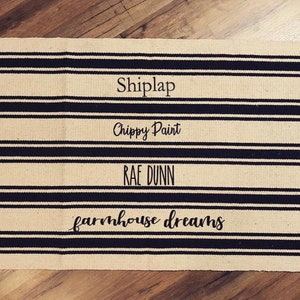 Shiplap
Chippy Paint
RAE DUNN
farmhouse dreams